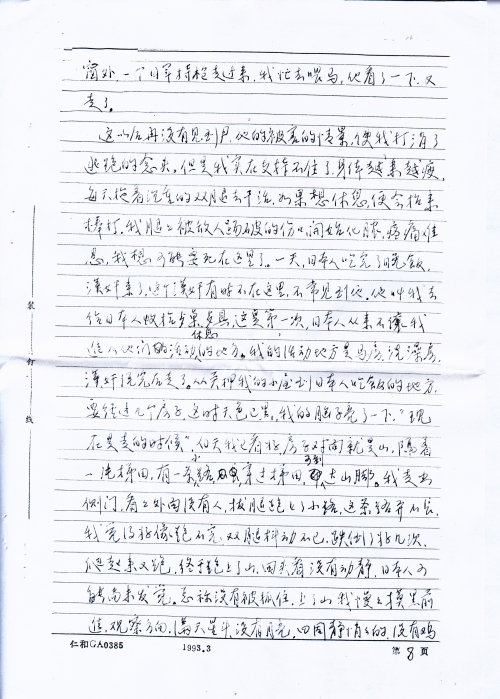 窗外,一个日军持枪走过来,我忙去喂马,他看了一下,又
走了。
这以后再没有见到尹,他的被害的情景,使我打消了
逃跑的念头。但是我实在支持不住了,身体越来越瘦,
每天拖着沉重的双腿去干活,如果想休息,便会招来
棒打,我腿上被敌人踢破的伤口开始化脓,疼痛难
忍,我想可能要死在这里了。一天,日本人吃完了晚飯,
漢奸来了,这个漢奸有时不在这里,不常见到他。他叫我去
给日本人收拾桌具,这是第一次,日本人从来不讓我
进入他们的活动休息的地方。我的活动地方是马房、洗澡房,
漢奸说完后走了。从关押我的小屋到日本人吃飯的地方,
要经过几个房子,这时天色已黑,我的脑子亮了一下,“现
在是走的时候”,白天我已看好房子对面就是山,隔着
一片梯田,有一条小路穿过梯田,可到达山脚。我走出
侧门,看上外面没有人,拔腿跑上了小路,这条路并不长,
我觉得好像跑不完,双腿抖动不已,跌倒了好几次,
爬起来又跑,终于跑上了山,回头看没有动静,日本人可
能尚未发觉。总祘没有被抓住,上了山我慢上摸黑前
进,观察方向,满天星斗,没有月亮,四周静悄上的,没有鸡
仁和GA0385 1993.3 第8页
装
订
线